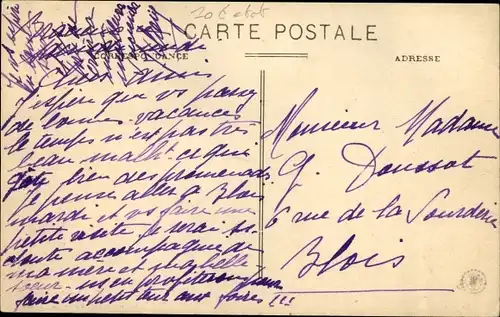 CARTE POSTALE
CORRESPONDANCE
ADRESSE
J'espère que vs passez
de bonnes vacances
le temps n'est pas très
beau malh. ce qui
gâte bien des promenades
Je pense aller à Blois
mardi et vs faire une
petite visite je serai ss
doute accompagnée de
ma mère et ma belle
soeur. ns en profiterons pour
faire un petit tour aux foires !!!
Monsieur Madame
G. Doussot
6 rue de la
Blois